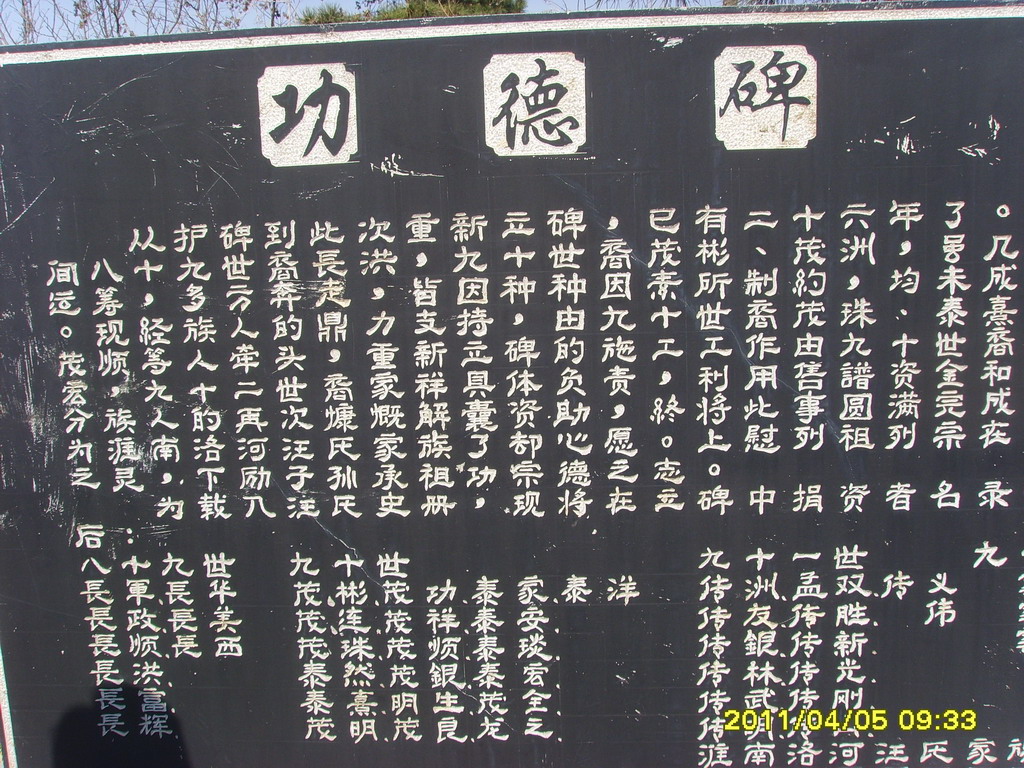 功德碑
。几成熹裔和成在录
了未泰世金完宗名
年，均、十资满列者
六洲，珠九譜圆祖资
十茂約茂由售事列捐
二、制裔作用此慰中
有彬所世工利将上。碑
已茂素十工，終。志立
，裔因九施责，愿之在
碑世种由的负助心德将
立十种，碑体资却宗现
新九因持立具囊了功，
重，皆支新祥解族祖册
次洪，力重家慨家承史
此長走鼎，裔慷氏孙氏
到裔奔的头世次汪子汪
碑世分人牵二再河励八
护九多族人十的洛下载
从十，经等九人南，为
八筹现顺，族淮灵
间运。茂宏分为之
九家
义伟氏
传汪
世双胜新光刚河
一孟传传传传洛
十洲友銀林武南
九传传传传传淮
洋
家安琰宏全之
泰泰泰泰茂龙
功祥顺銀生良
世茂茂茂明茂
十彬连珠然熹明
九茂茂茂泰泰茂
世华美西
九長長長
：十軍政顺洪富辉
后八長長長長長長
2011/04/05 09:33